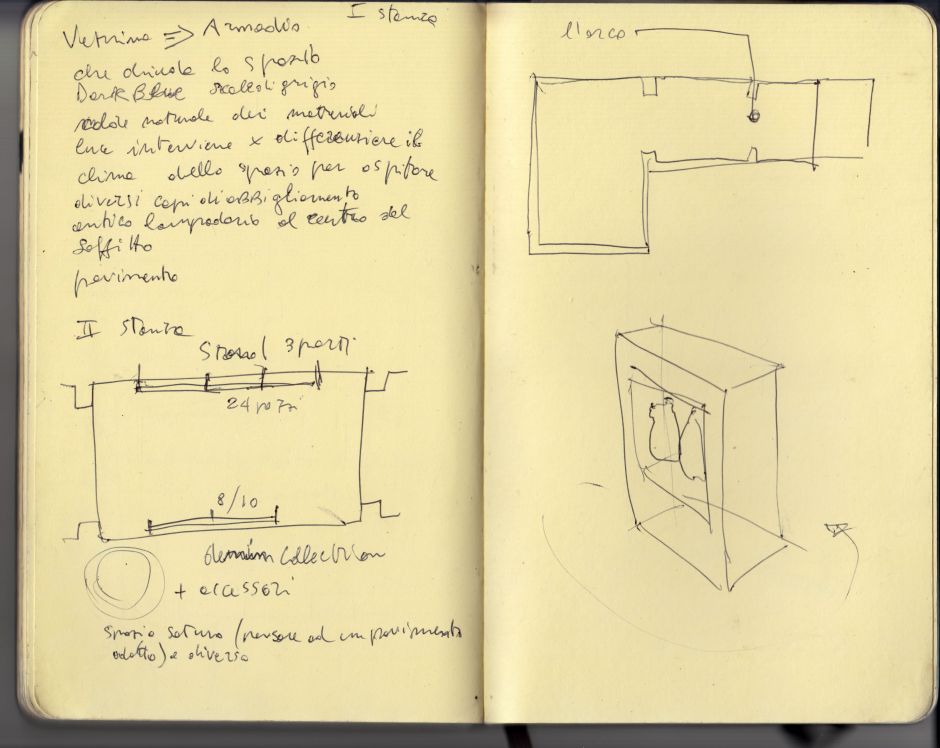 I stanza
Vetrina => Armadio
che chiude lo spazio
Dark Blue scala di grigio
naturale dei materiali
luce interviene x differenziare il
clima dello spazio per ospitare
diversi capi di abbigliamento
antico lampadario al centro del
soffitto
pavimento
II stanza
3 parti
24 pezzi
8/10
denim collection
+ accessori
spazio saturo (pensare ad un pavimento
adatto) e diverso
l'arco